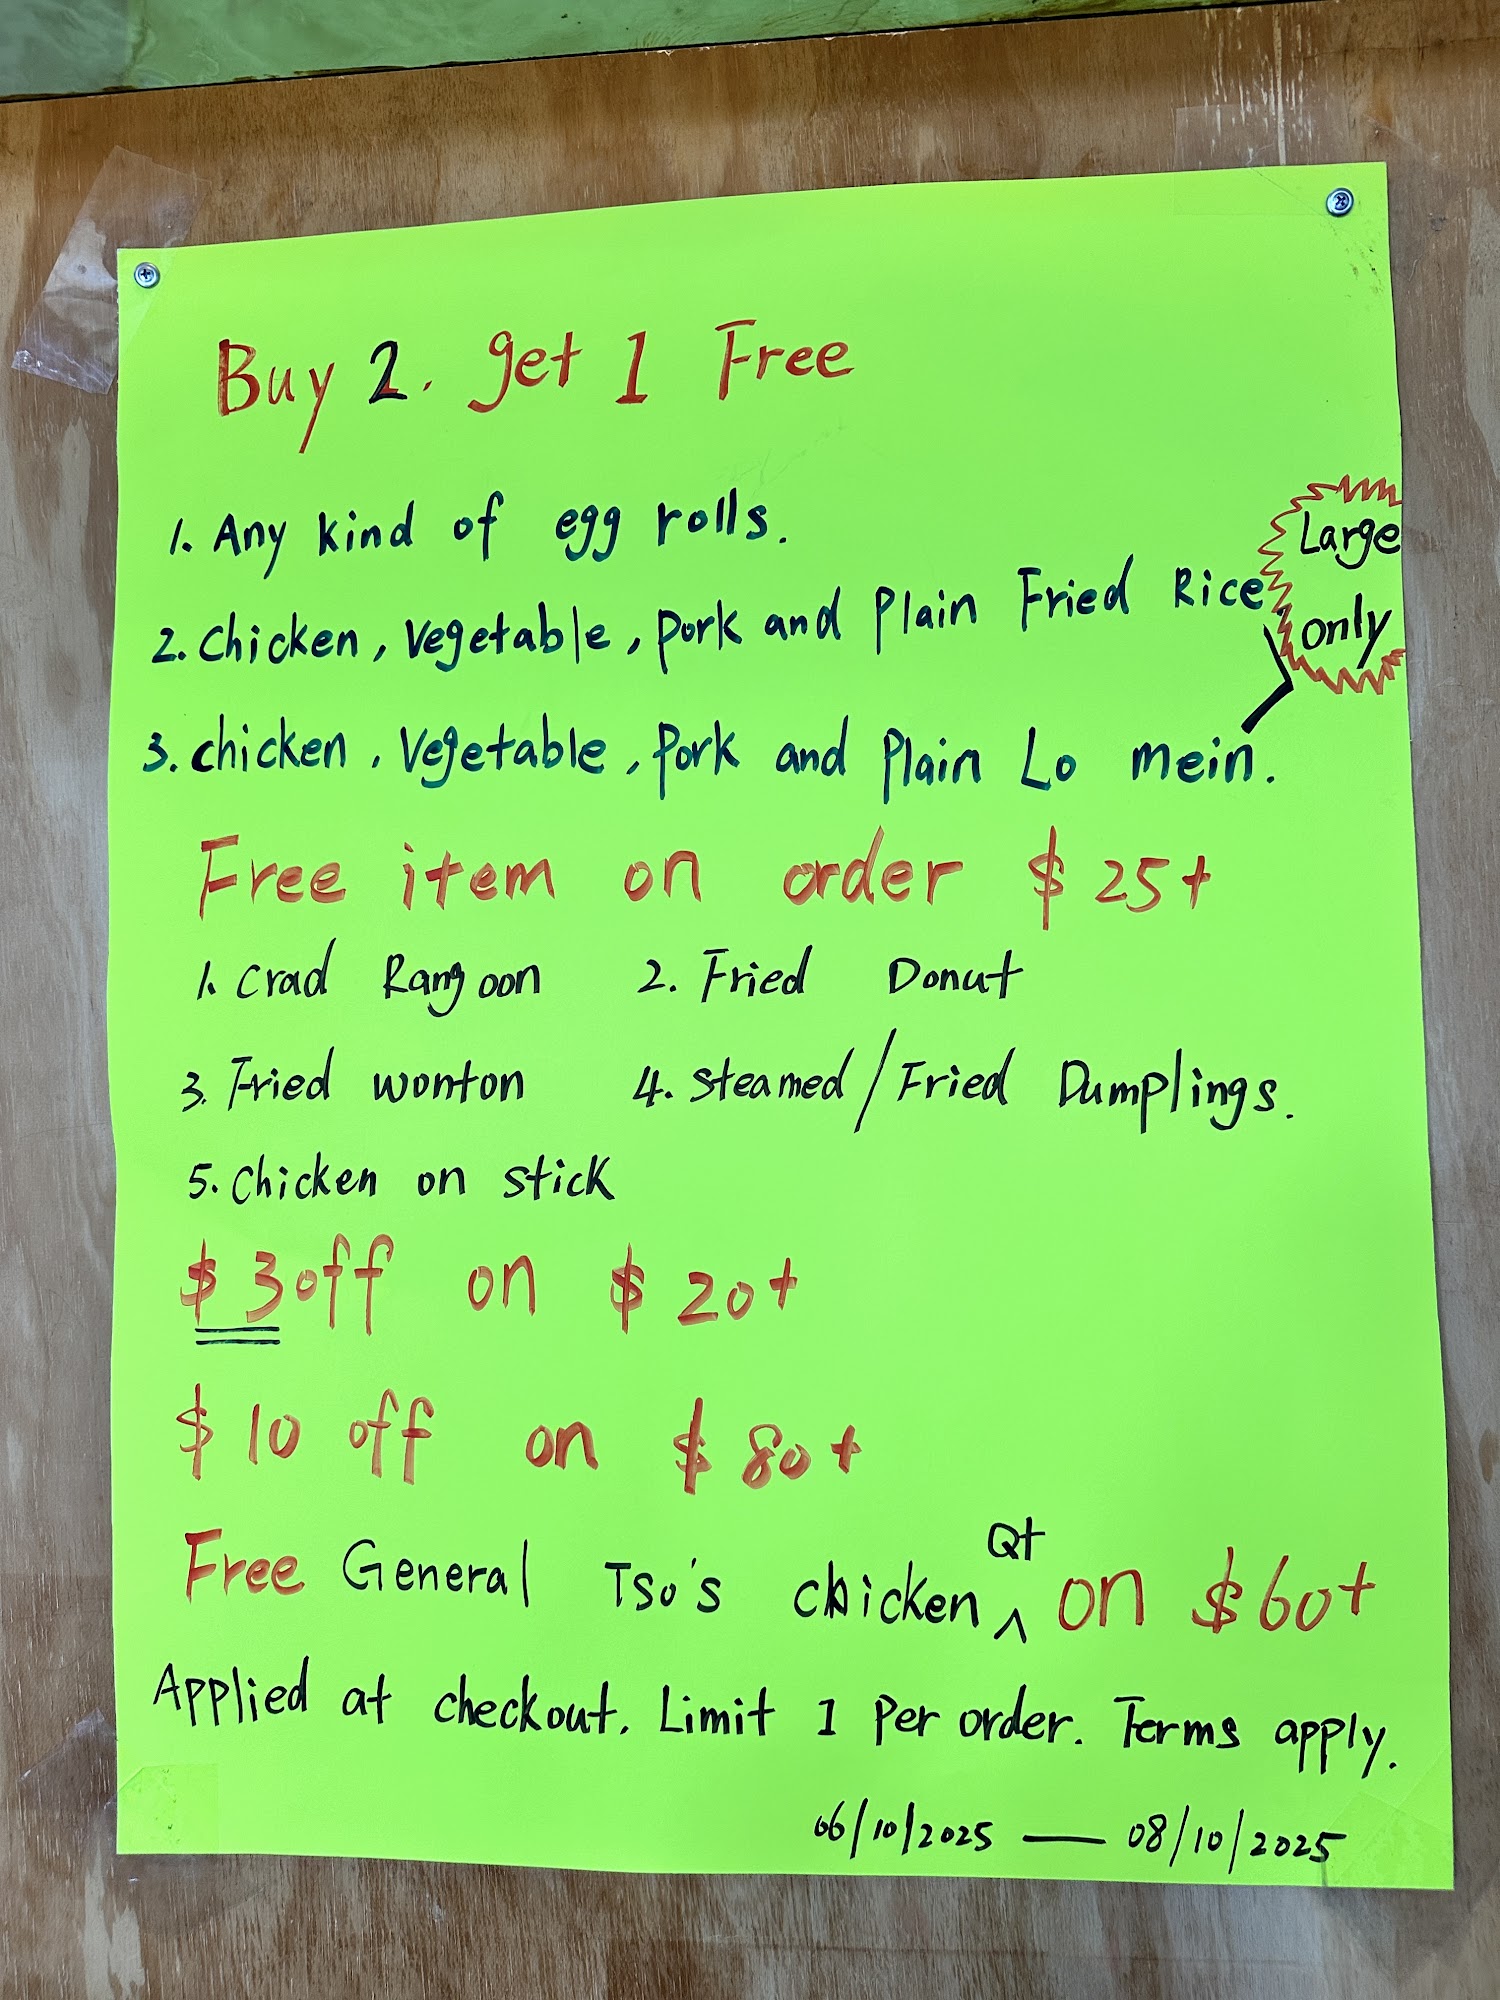 Buy 2. get 1 Free
1. Any kind of egg rolls.
2. Chicken, Vegetable, Pork and Plain Fried Rice
Large
only
3. chicken, Vegetable, Pork and Plain Lo mein.
Free item on order $25+
1. Crad Rangoon 2. Fried Donut
3. Fried wonton 4. Steamed/Fried Dumplings.
5. Chicken on stick
$3 off on $20+
$10 off on $80+
Free General Tso's chicken Qt on $60+
Applied at checkout. Limit 1 Per order. Terms apply.
06/10/2025 — 08/10/2025